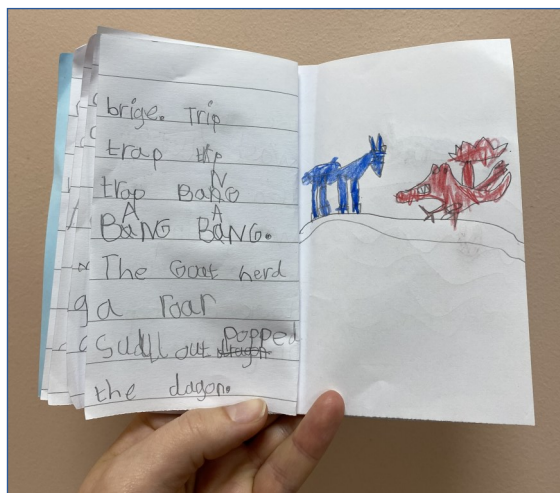 brige. Trip
trap trip
trap BANG
BANG BANG.
The Goat herd
a roar
Suddll out popped
the dagon.